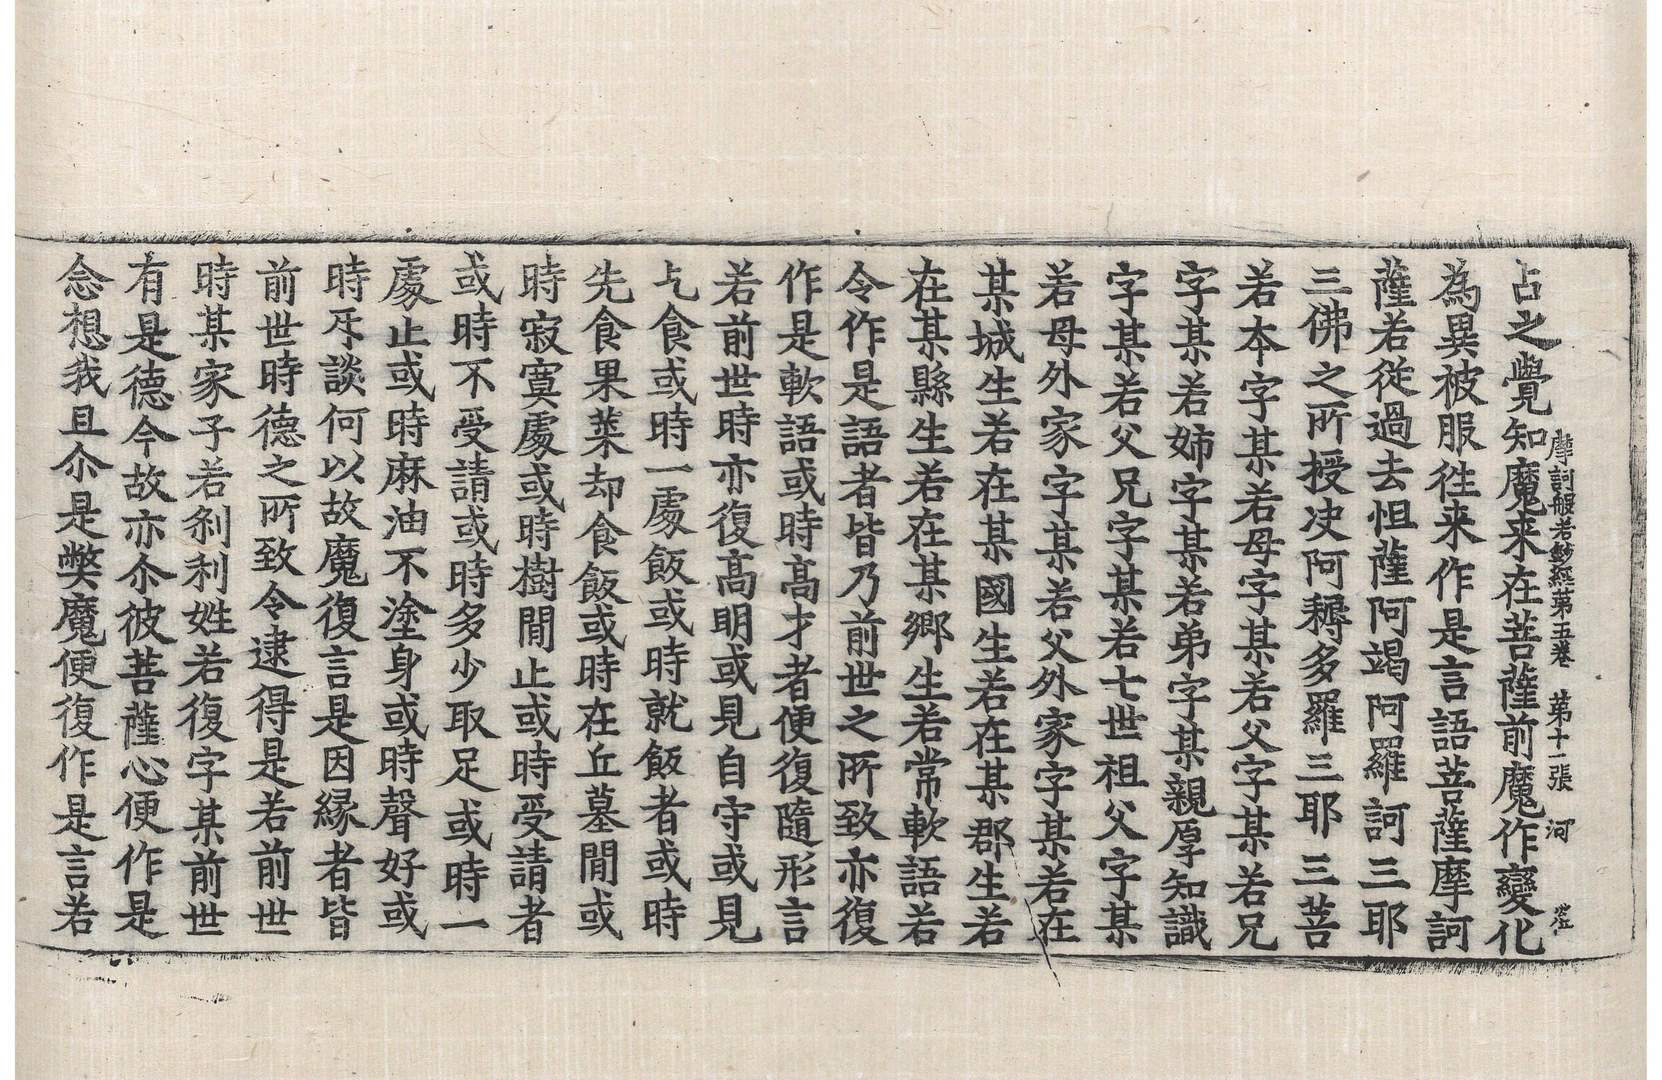 摩訶般若鈔經第五卷　第十一張　河
占之覺知魔来在菩薩前魔作變化
為異被服徃来作是言語菩薩摩訶
薩若從過去怛薩阿竭阿羅訶三耶
三佛之所授决阿耨多羅三耶三菩
若本字某若母字某若父字某若兄
字某若姉字某若弟字某親厚知識
字某若父兄字某若七世祖父字某
若母外家字某若父外家字某若在
某城生若在某國生若在某郡生若
在某縣生若在某鄉生若常軟語若
令作是語者皆乃前世之所致亦復
作是軟語或時高才者便復隨形言
若前世時亦復高明或見自守或見
乞食或時一處飯或時就飯者或時
先食果菜却食飯或時在丘墓閒或
時寂寞處或時樹閒止或時受請者
或時不受請或時多少取足或時一
處止或時麻油不塗身或時聲好或
時㸦談何以故魔復言是因緣者皆
前世時德之所致令逮得是若前世
時某家子若刹利姓若復字某前世
有是德今故亦尒彼菩薩心便作是
念想我且尒是弊魔便復作是言若